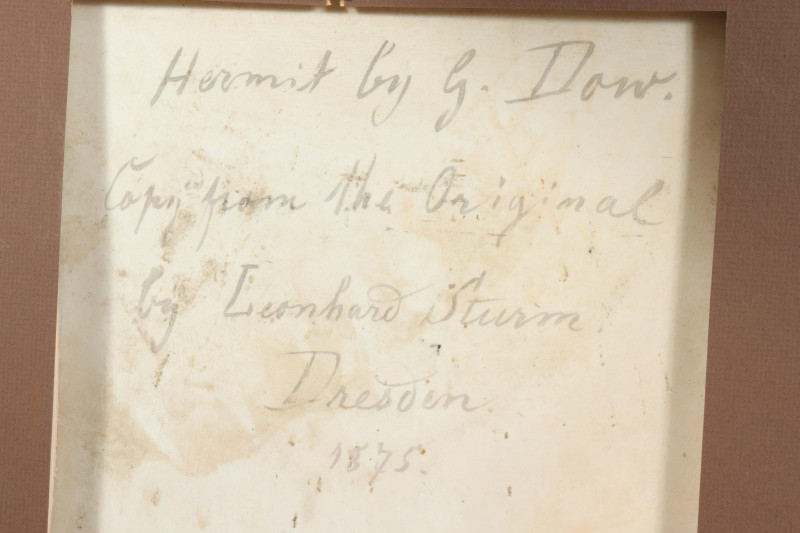 Hermit by G. Dow.
Copy from the Original
by Leonhard Sturm
Dresden.
1875.